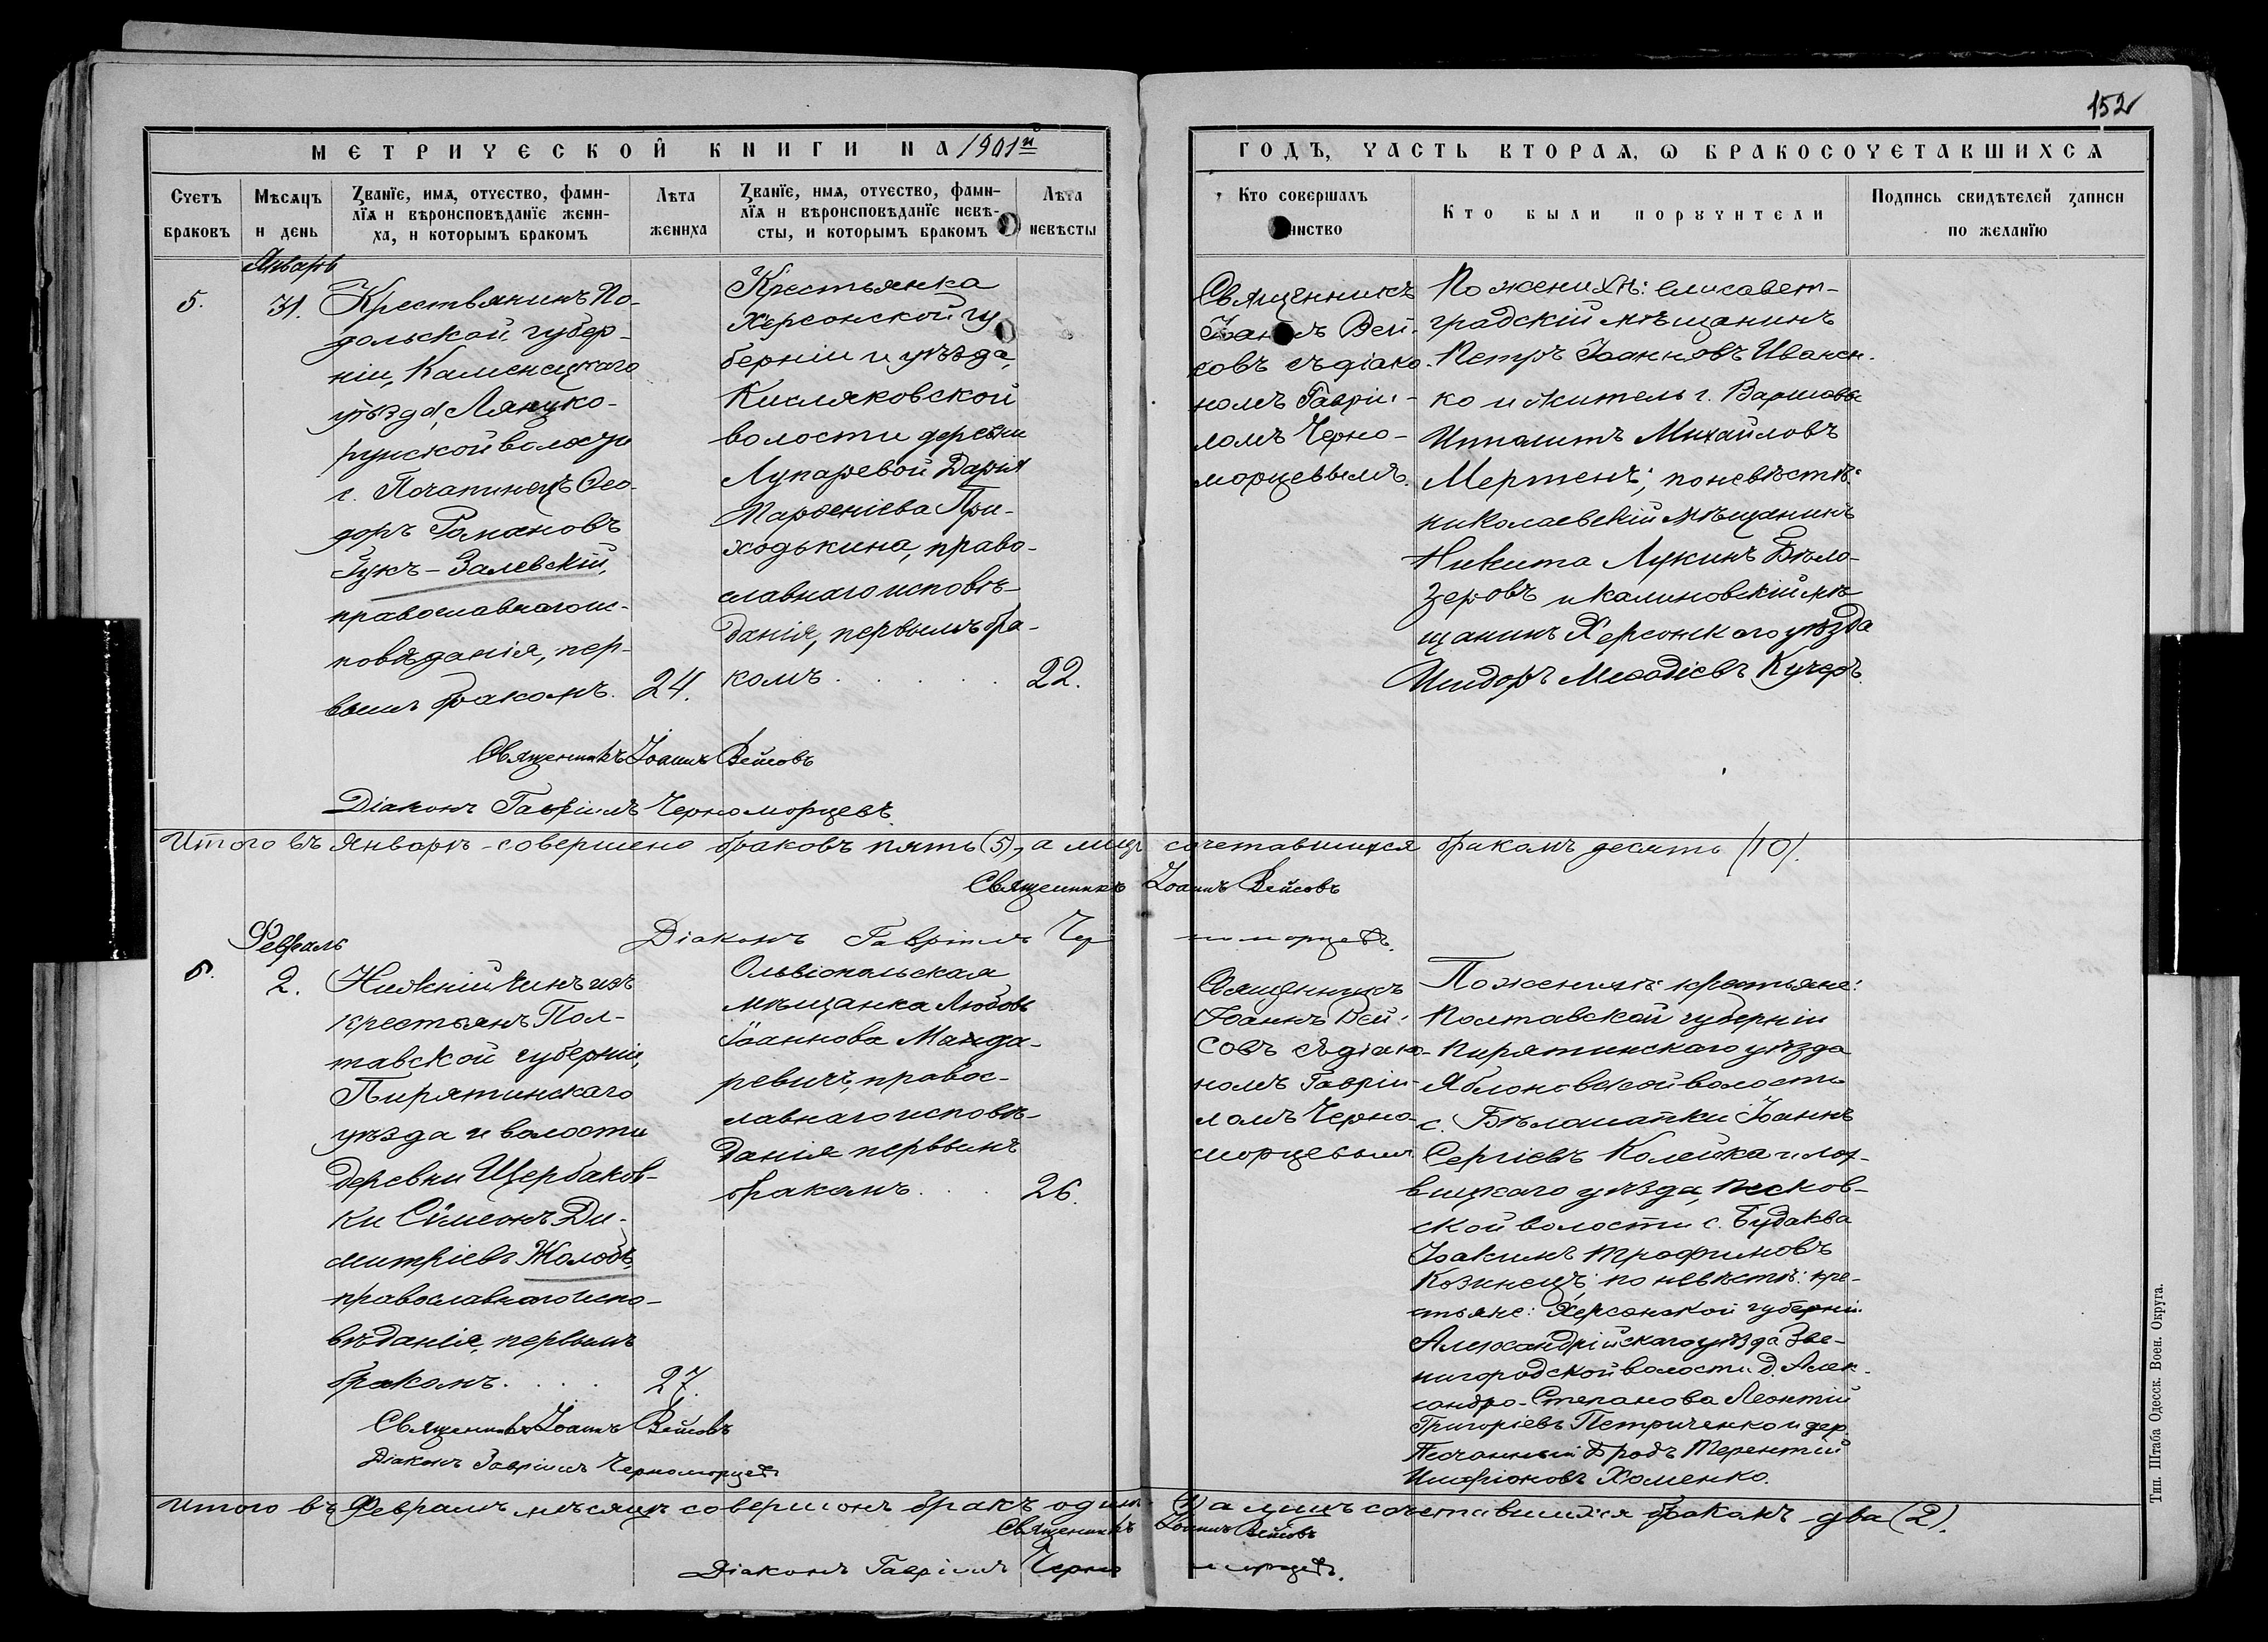 152
МЕТРИЧЕСКОЙ КНИГИ НА 1901й
ГОДЪ, ЧАСТЬ ВТОРАЯ, Ѡ БРАКОСОЧЕТАВШИХСЯ
Счетъ браковъ
Мѣсяцъ и день
Званїе, имя, отчество, фами-
лїя и вѣроисповѣданїе жени-
ха, и которымъ бракомъ
Лѣта жениха
Званїе, имя, отчество, фами-
лїя и вѣроисповѣданїе невѣ-
сты, и которымъ бракомъ
Лѣта невѣсты
Кто совершалъ
инство
Кто были порꙋчители
Подпись свидѣтелей записи
по желанїю
Январь
5.
31.
Крестьянинъ По-
дольской губер-
ніи, Каменецкаго
уѣзда, Лянцко-
рунской волости
с. Почапинецъ Ѳео-
доръ Романовъ
Гукъ-Залевскій,
православнаго ис-
повѣданія, пер-
вымъ бракомъ.
24.
Крестьянка
Херсонской гу
берніи и уѣзда,
Кисляковской
волости деревни
Лупаревой Дарія
Парѳеніева При-
ходькина, право-
славнаго исповѣ-
данія, первымъ бра-
комъ
22.
Священникъ
Іоаннъ Вей-
совъ съ діако-
номъ Гаврiи-
ломъ Черно-
морцевымъ.
По женихѣ: елисавет-
градскій мѣщанинъ
Петръ Іоанновъ Иванен-
ко и житель г. Варшавы
Ипполитъ Михайловъ
Мертенъ; по невѣстѣ:
николаевскій мѣщанинъ
Никита Лукинъ Бѣло-
зеровъ и калиновскій мѣ
щанинъ Херсонскаго уѣзда
Исидоръ Меѳодіевъ Кучеръ.
Священникъ Іоаннъ Вейсовъ
Діаконъ Гавріилъ Черноморцевъ.
Итого въ Январѣ - совершено браковъ пять (5), а лицъ сочетавшихся бракомъ десять (10).
Священникъ Іоаннъ Вейсовъ
Діаконъ Гавріилъ Черноморцевъ.
Февраль
6.
2.
Нижній чинъ изъ
крестьянъ Пол-
тавской губерніи,
Пирятинскаго
уѣзда и волости
деревни Щербаков-
ки Сѵмеонъ Ди-
митріевъ Жолобъ,
православнаго испо-
вѣданія, первымъ
бракомъ
27.
Ольвіопольская
мѣщанка Любовь
Іоаннова Манда-
ревичъ, правос-
лавнаго исповѣ-
данія первымъ
бракомъ
26.
Священникъ
Іоаннъ Вей-
совъ съ діако-
номъ Гаврiи-
ломъ Черно-
морцевымъ
По женихѣ: крестьяне:
Полтавской губерніи
Пирятинскаго уѣзда
Яблоновской волости
с. Бѣлошапки Іоаннъ
Сергіевъ Колейка и лох-
вицкаго уѣзда, Песков-
ской волости с. Будаква
Іоакимъ Трофимовъ
Козинецъ; по невѣстѣ: кре-
стьяне: Херсонской губерніи
Александрійскаго уѣзда Зве-
нигородской волости д. Алек-
сандро-Степанова Леонтій
Григоріевъ Петриченко и дер.
Песчанный Бродъ Терентій
Ипофіоновъ Хоменко.
Священникъ Іоаннъ Вейсовъ
Діаконъ Гавріилъ Черноморцевъ
Итого въ Февралѣ мѣсяцѣ совершонъ бракъ одинъ (1) а лицъ сочетавшихся бракомъ - два (2).
Священникъ Іоаннъ Вейсовъ
Діаконъ Гавріилъ Черноморцевъ.
Тип. Штаба Одесск. Воен. Округа.